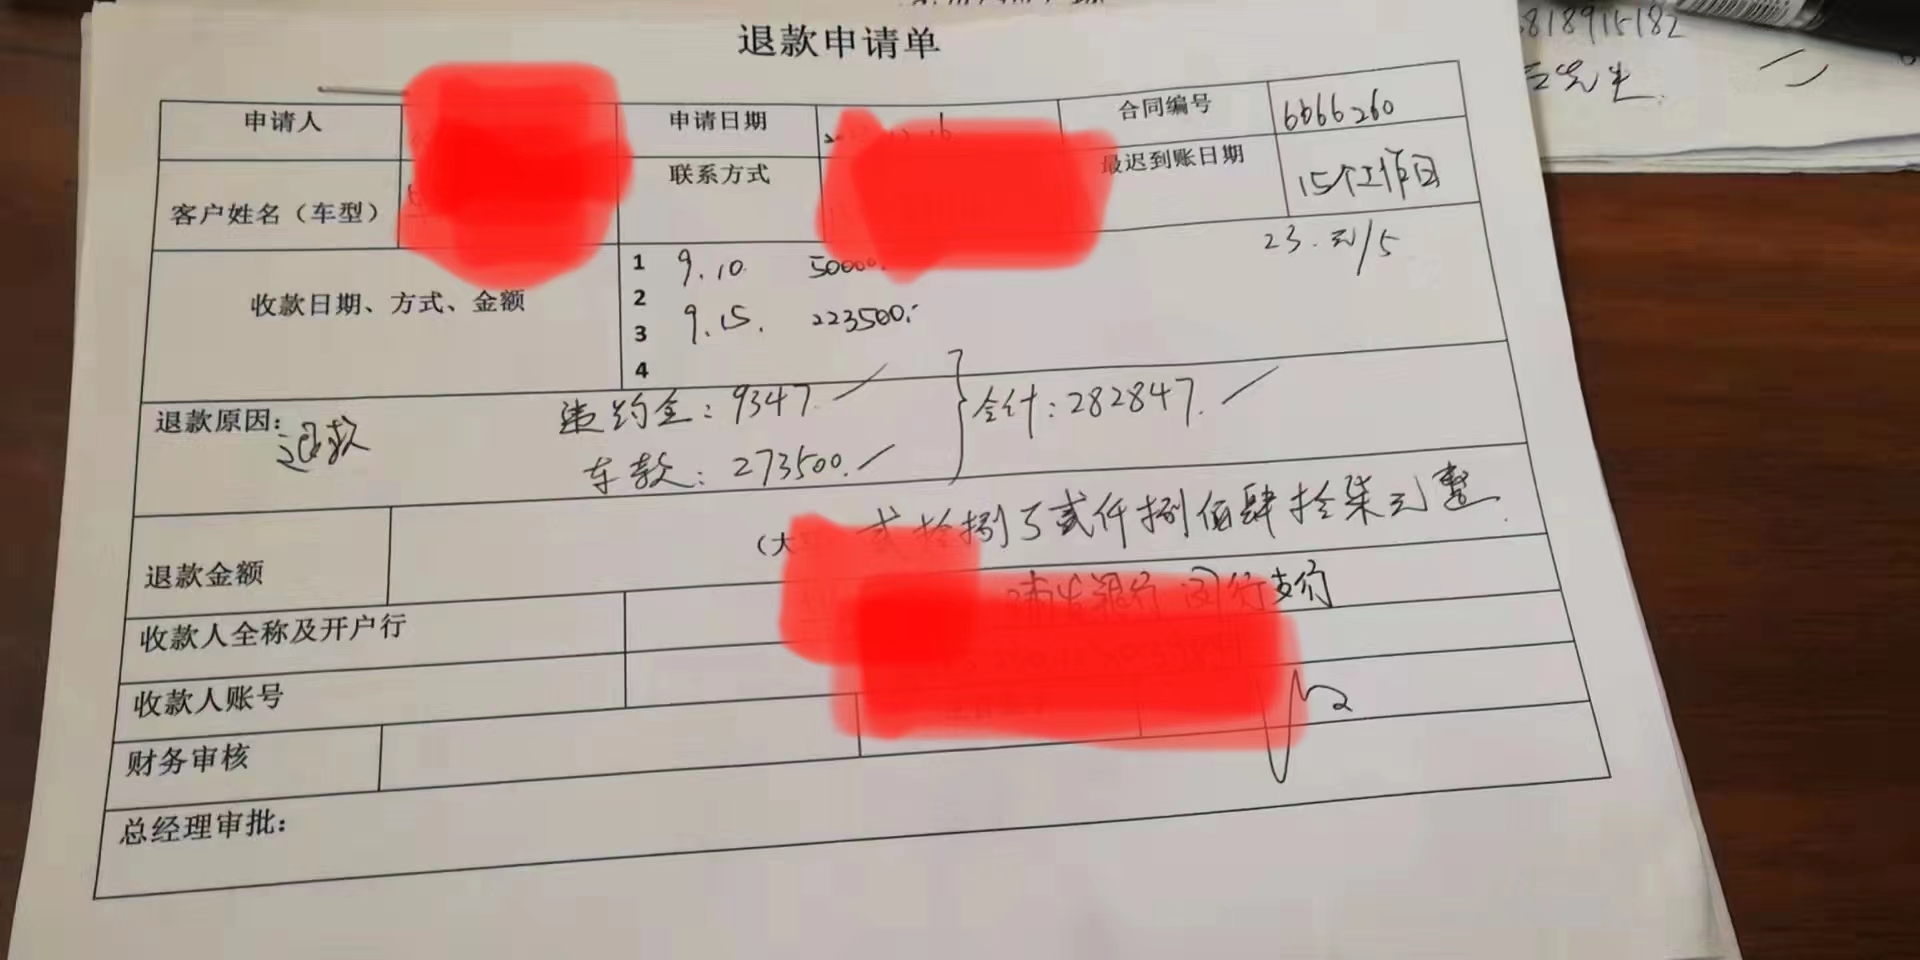 退款申请单
818915182
先生
申请人 申请日期 合同编号 6666260
客户姓名（车型） 联系方式 最迟到账日期 15个工作日
收款日期、方式、金额
1 9.10. 50000.
2
3 9.15. 223500.
4
退款原因：退款 违约金：9347. 合计：282847.
车款：273500.
退款金额 （大 贰拾捌万贰仟捌佰肆拾柒元整.
收款人全称及开户行 浦发银行 闵行支行
收款人账号
财务审核
总经理审批：